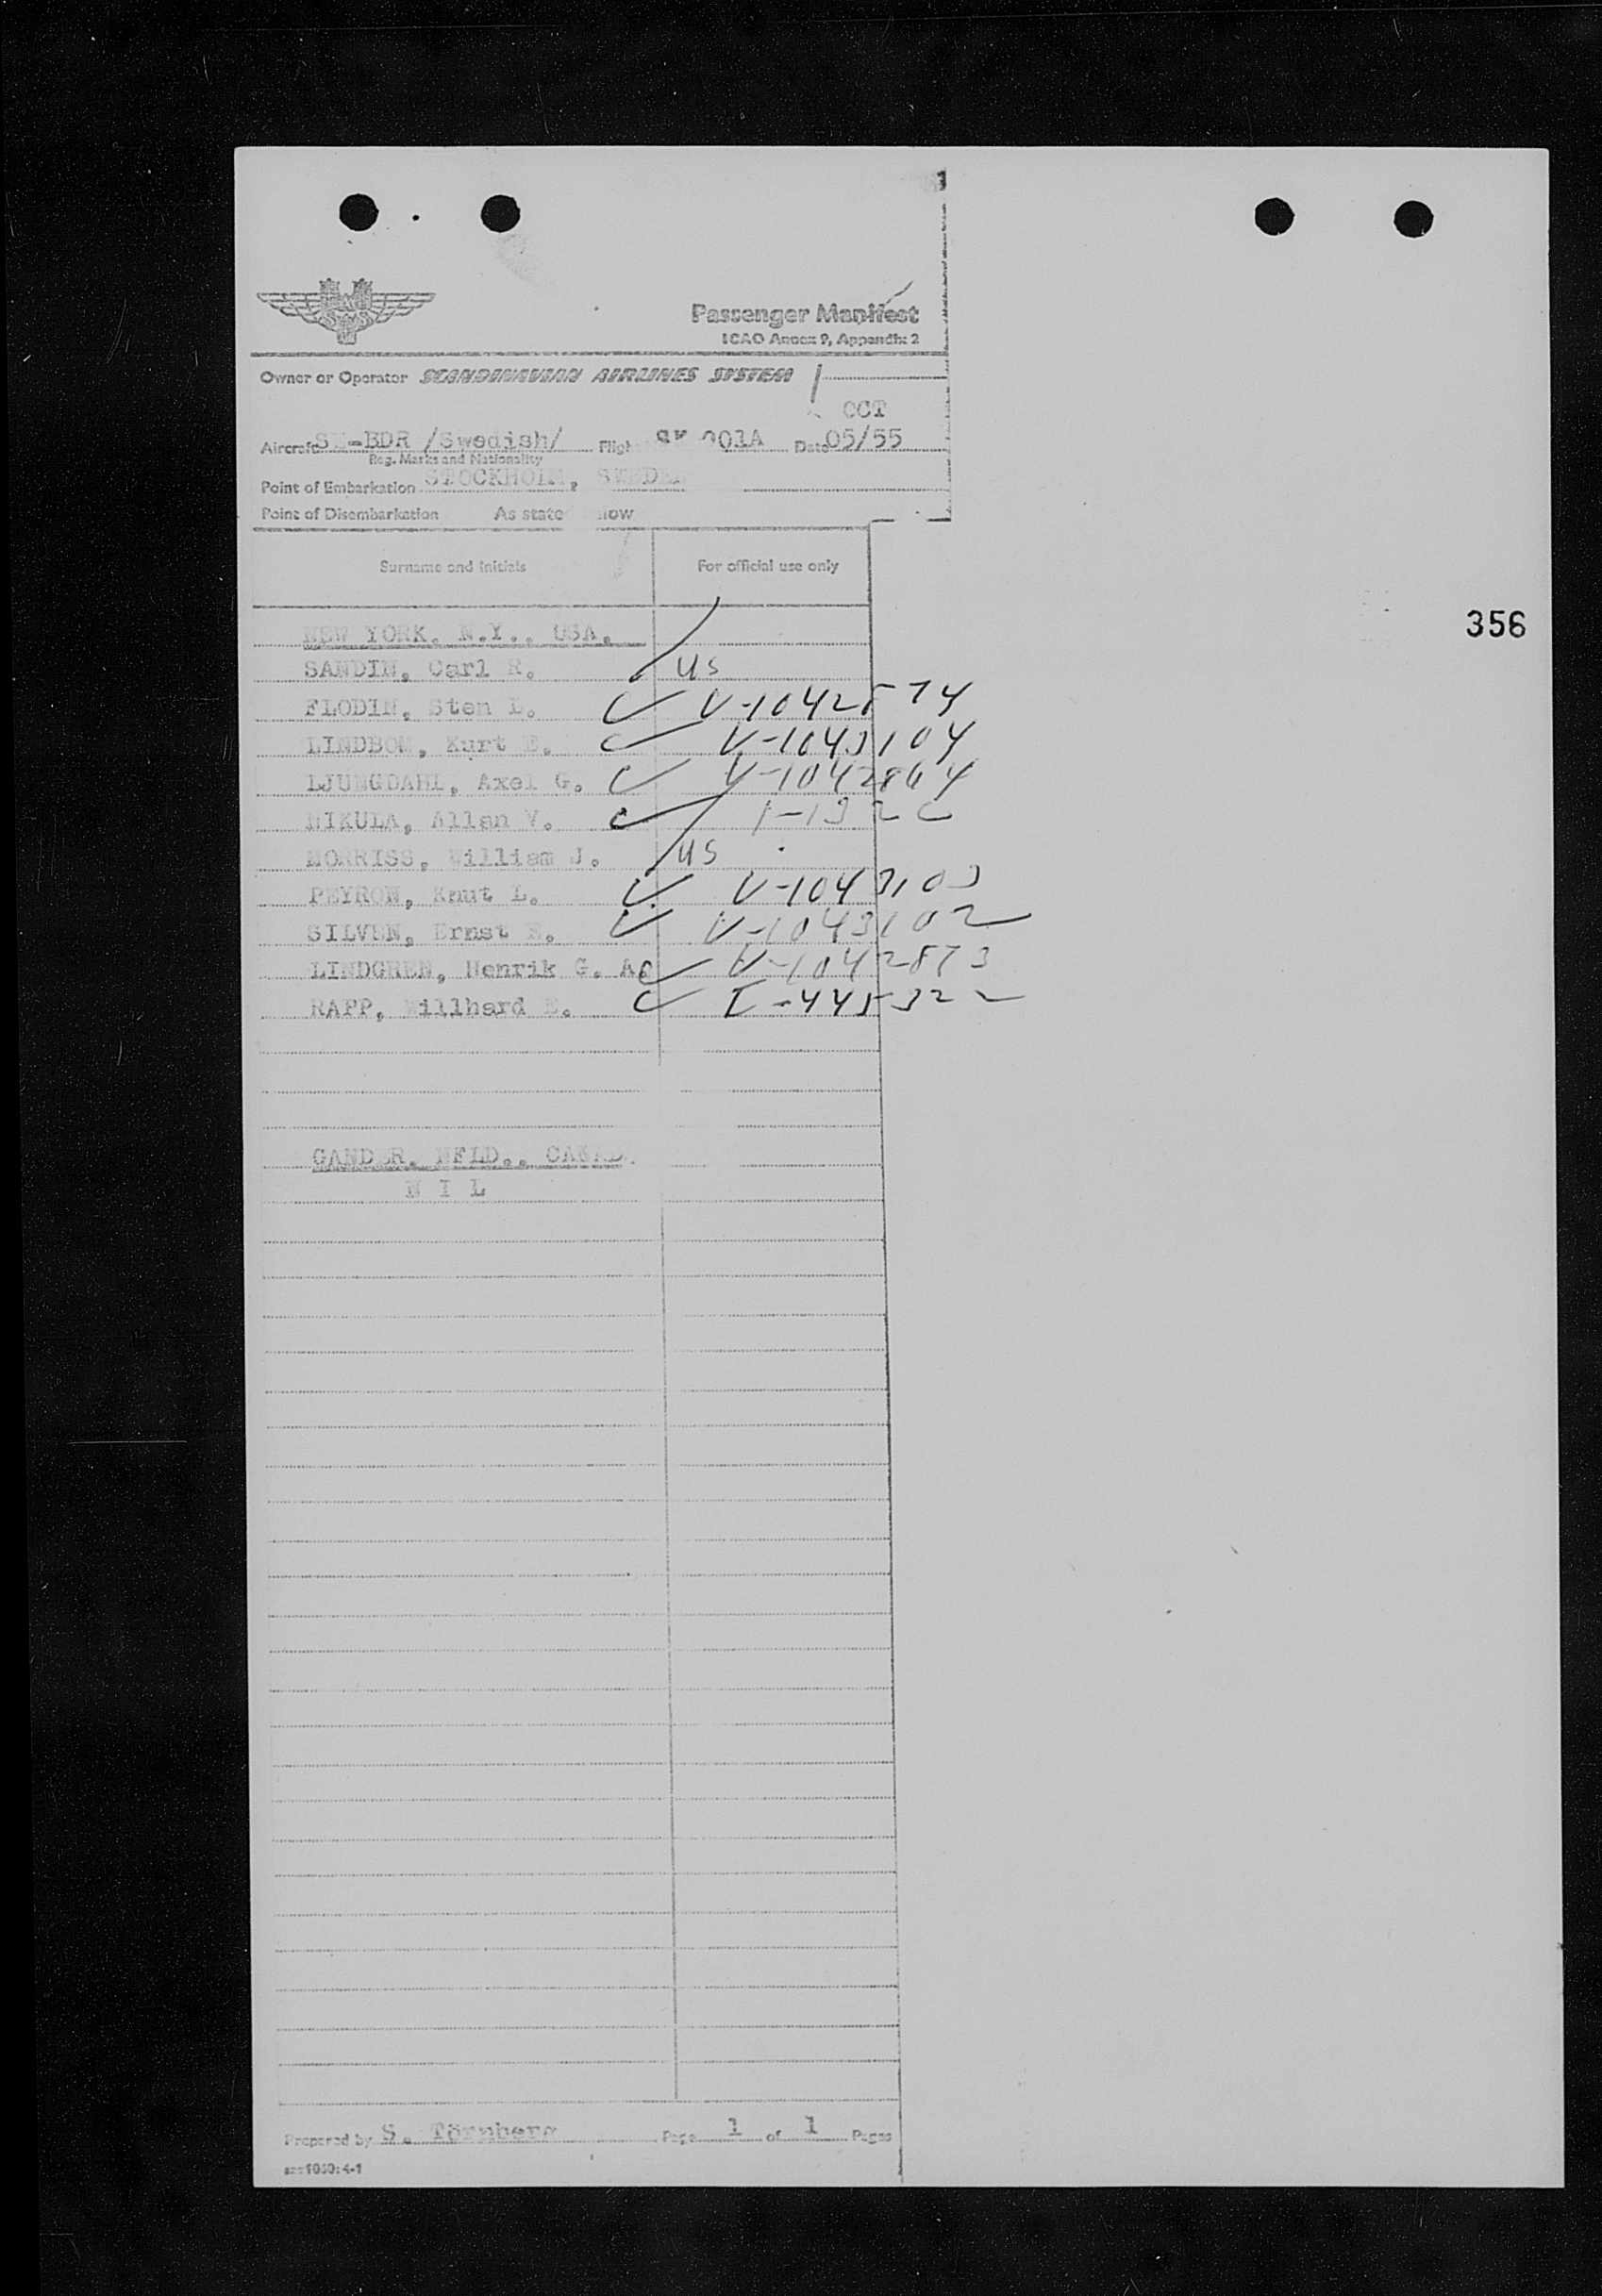 Passenger Manifest
ICAO Annex 9, Appendix 2
Owner or Operator SCANDINAVIAN AIRLINES SYSTEM
OCT
Aircraft SE-BDR /Swedish/ Flight SK 901A Date 05/55
Reg. Marks and Nationality
Point of Embarkation STOCKHOLM, SWEDEN
Point of Disembarkation As state low
Surname and Initials For official use only
356
NEW YORK, N.Y., USA.
SANDIN, Carl R. US
FLODIN, Sten L. V-1042874
LINDBOM, Kurt E. V-1043104
LJUNGDAHL, Axel G. V-1042864
NIKULA, Allan V.
MORRISS, William J. US
PEYRON, Knut L. V-1043103
SILVEN, Ernst V-1043102
LINDGREN, Henrik G. A. V-1042873
RAPP, Willhard E. I-445322
GANDER, NFLD., CANADA
N I L
Prepared by S. Törnberg Page 1 of 1 Pages